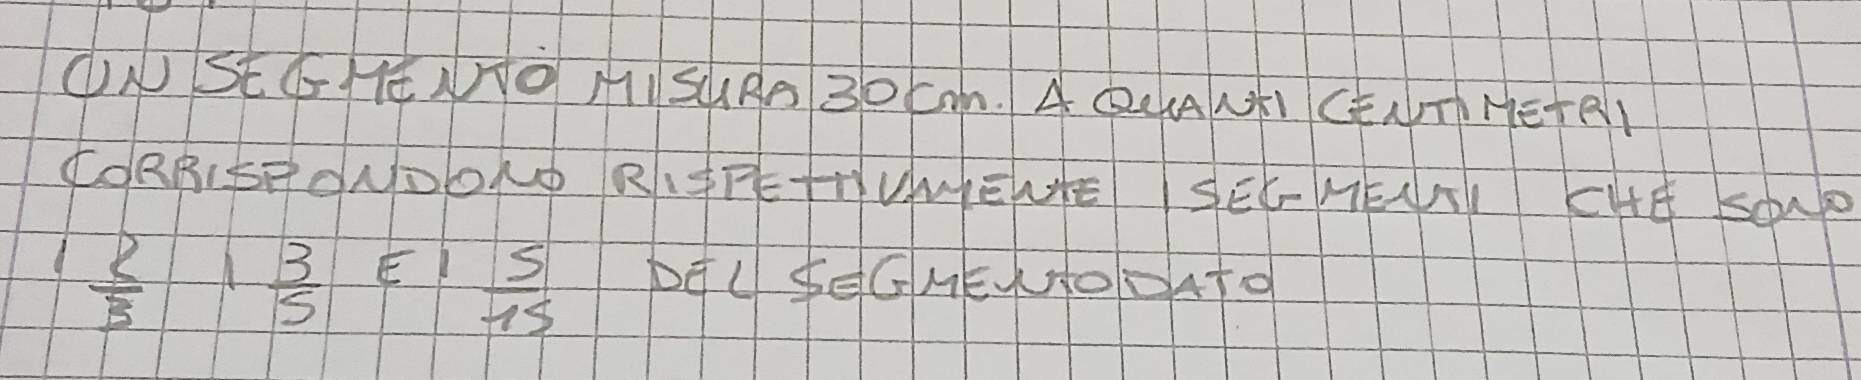 UN SEGMENTO MISURA 30 cm. A QUANTI CENTIMETRI
CORRISPONDONO RISPETTIVAMENTE I SEGMENTI CHE SONO
I 2/3 I 3/5 E I 5/15 DEL SEGMENTO DATO